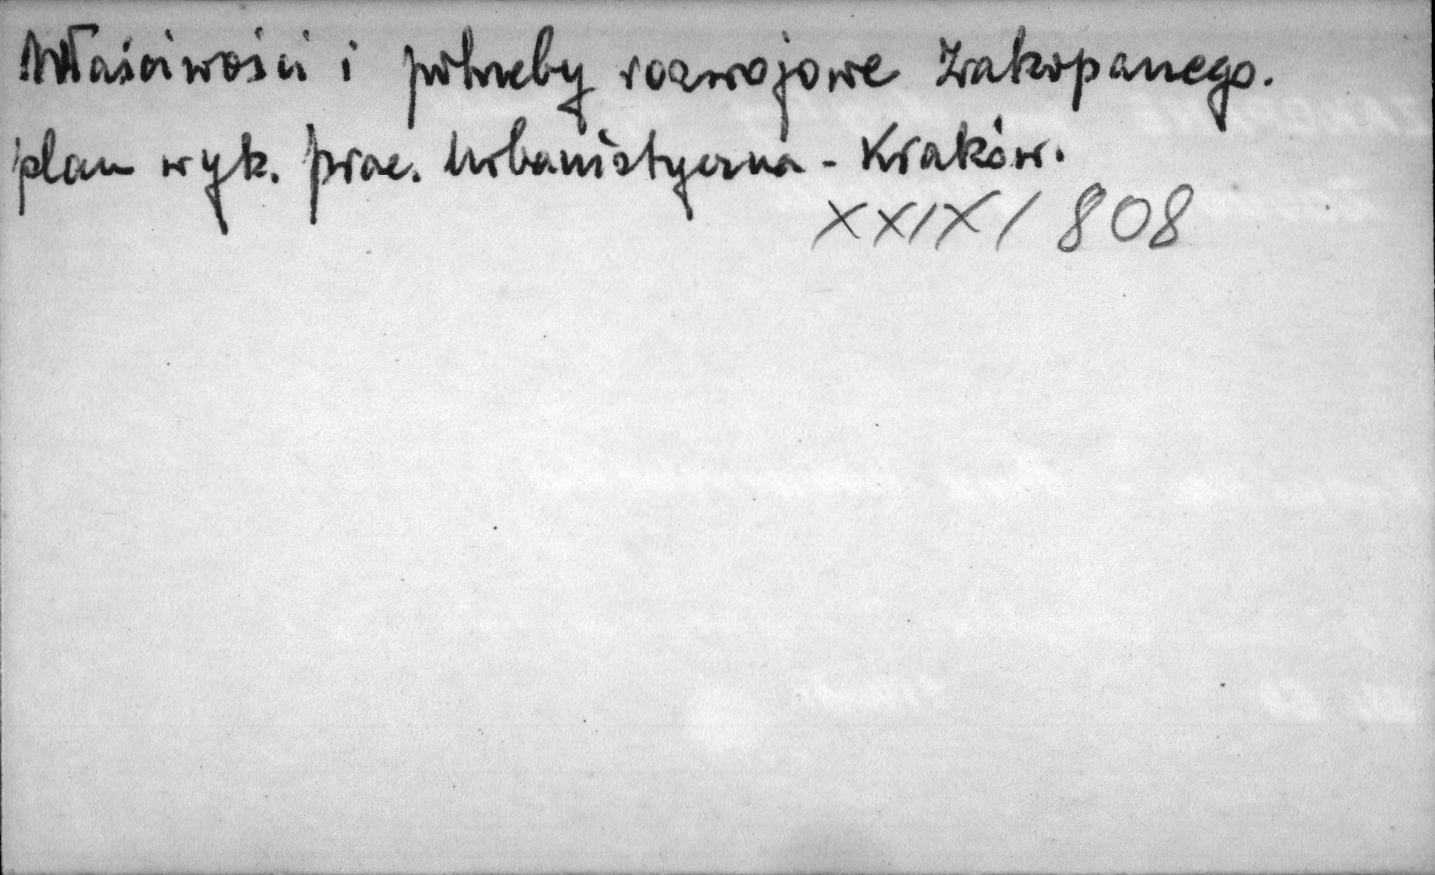 Właściwości i potrzeby rozwojowe Zakopanego.
plan wyk. prac. Urbanistyczna - Kraków.
XXIX/808